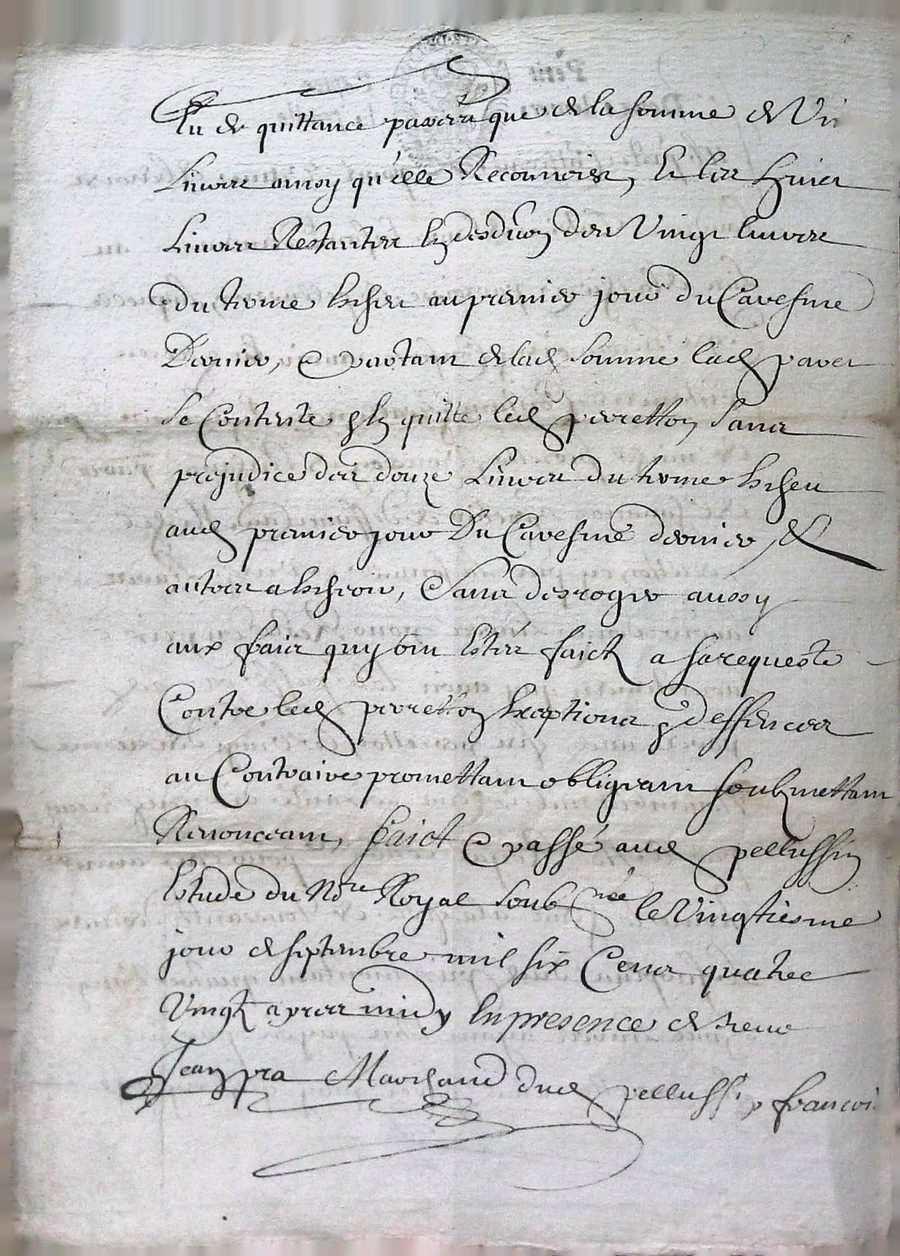 de quittance que de la somme de
Livres a moy qu'elle Reconnoist, Et les huict
Livres Restantes des Vingt livres
du terme escheu au premier jour du Caresme
Dernier, Et partant de lad somme lad
se Contente et En quitte led perretton Sans
prejudice des douze Livres du terme Escheu
aud premier jour Du Caresme dernier &
autres a Escheoir, Sans desroger aussy
aux fraix quy ont Estes faictz a sa requeste
Contre led perretton Exceptions et deffences
au Contraire promettant obligeant soubzmettant
Renonceant, faict Et passé aud pellussin
Estude du Nore Royal soubné le Vingtiesme
jour de septembre mil six Cens quatre
Vingtz apres midy En presence de sieur
Jean pra Marchand dud pellussin, francois